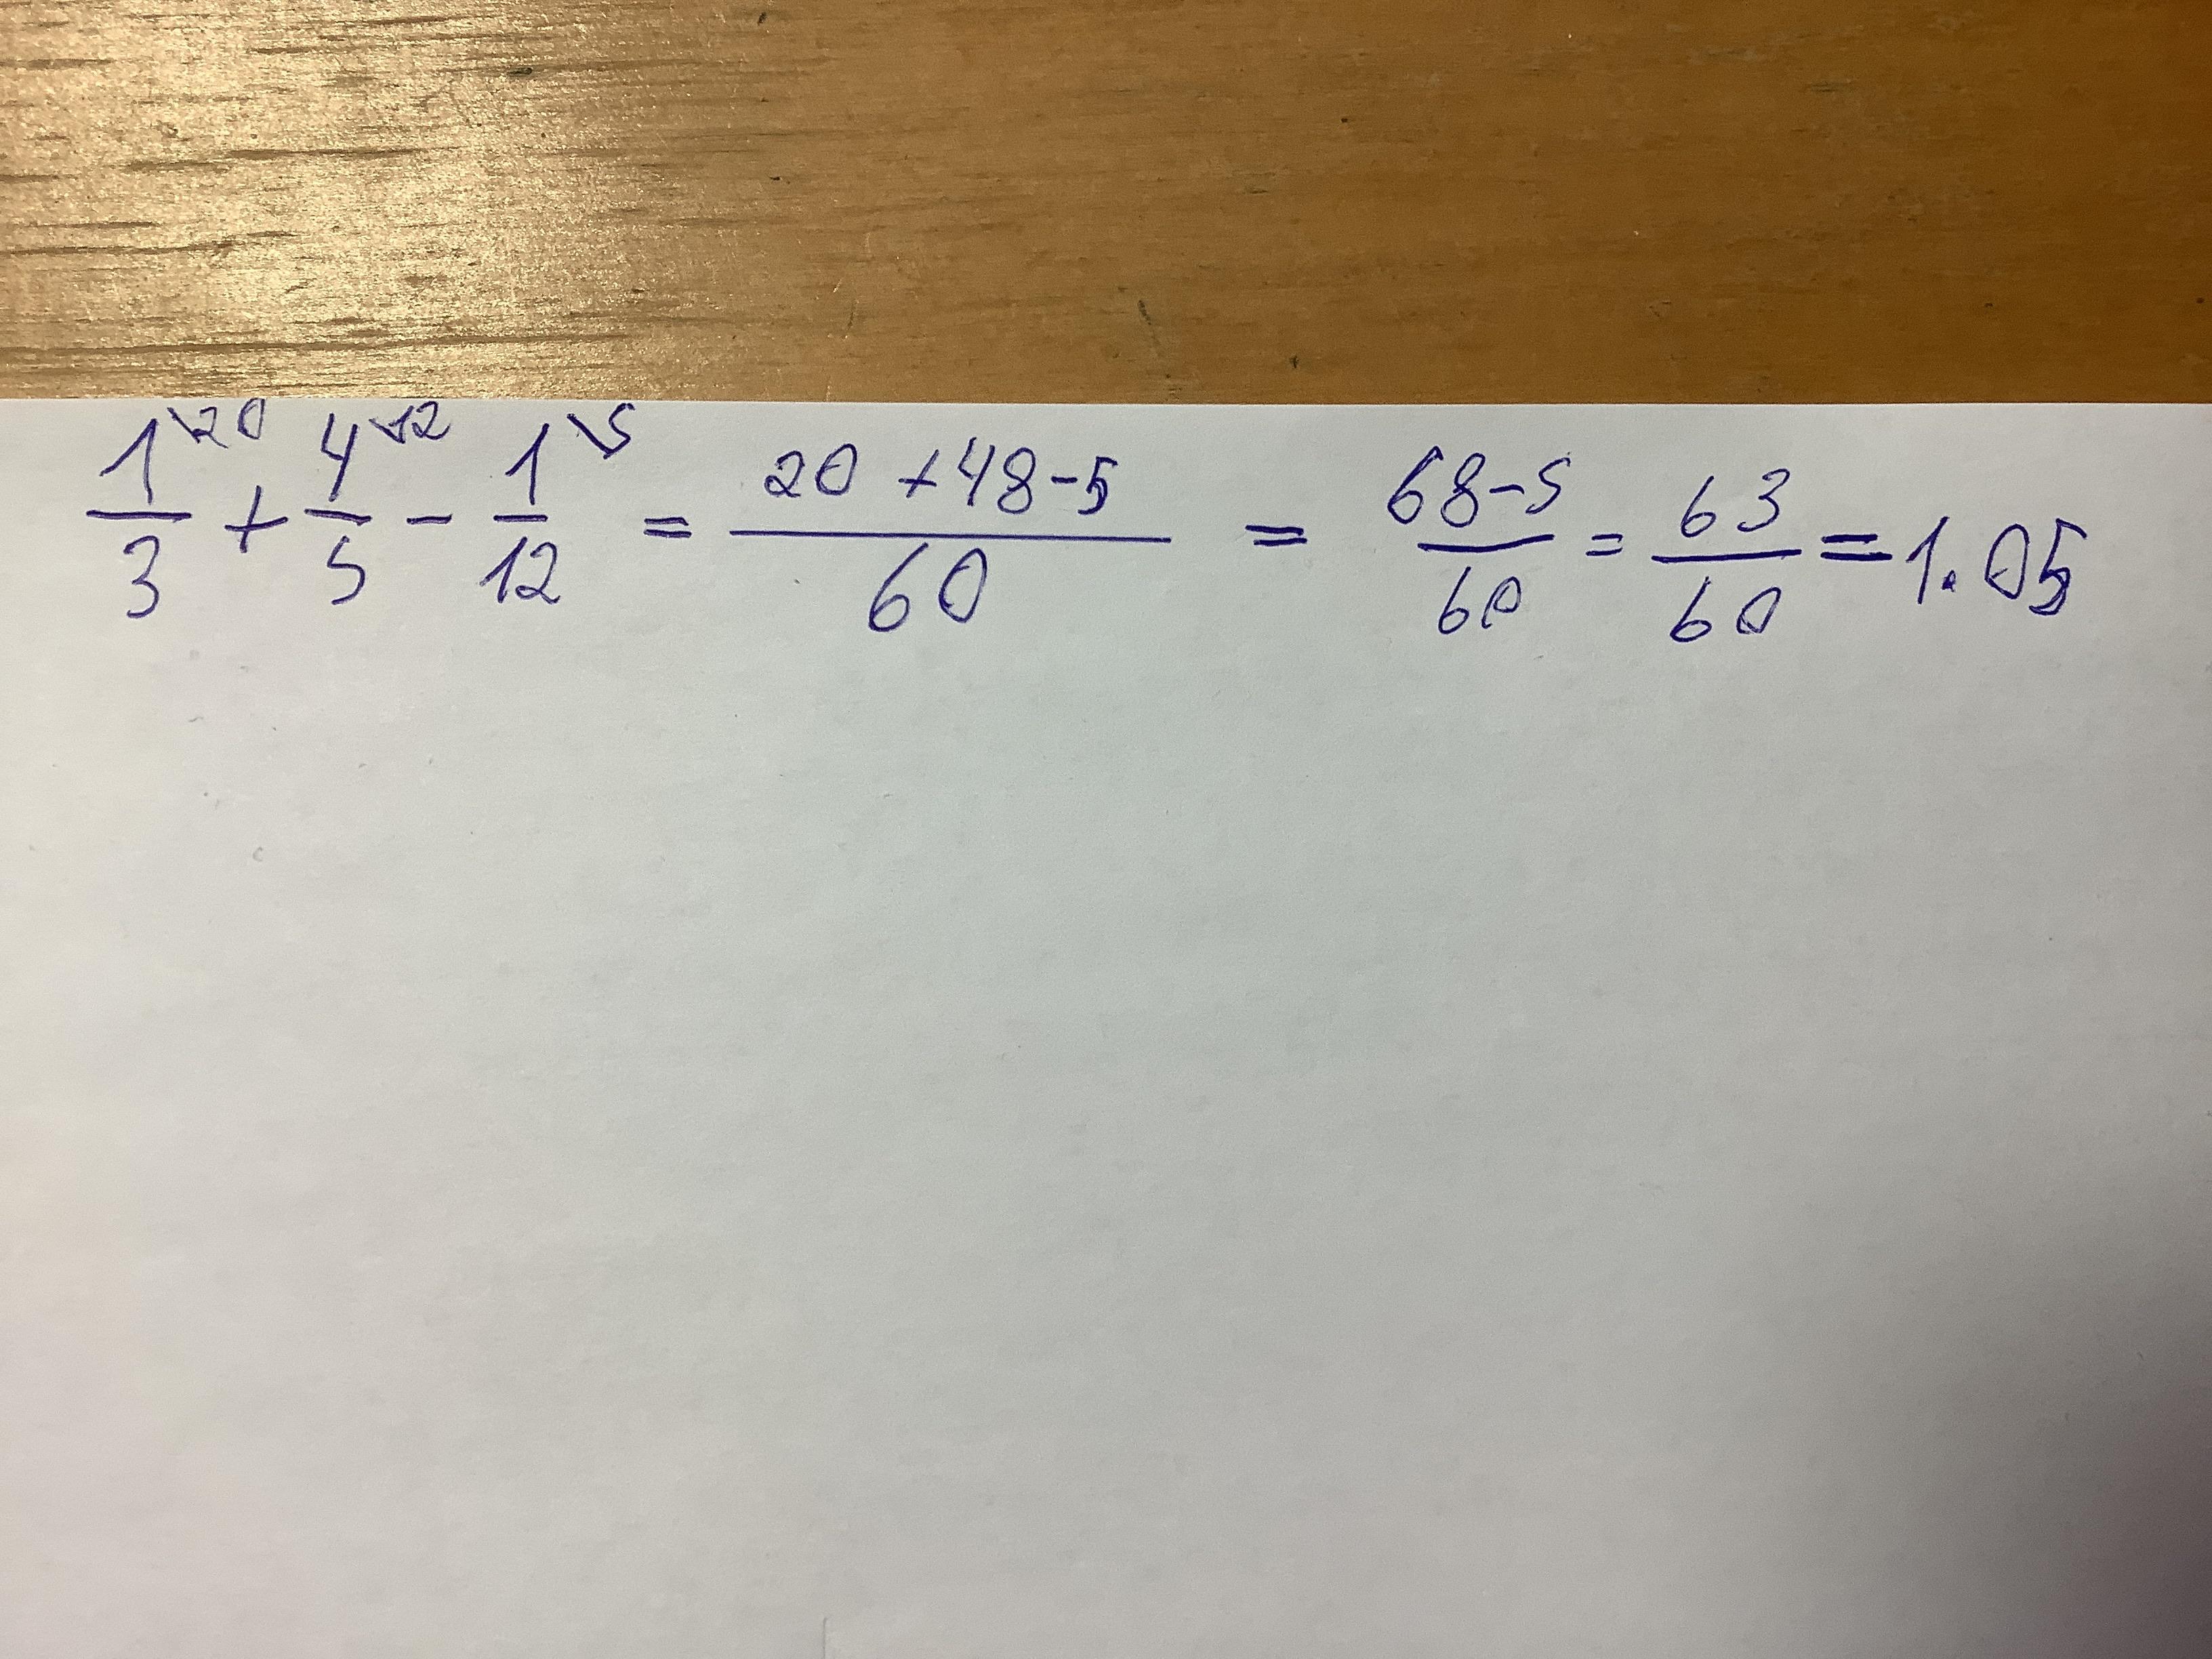 1\20/3 + 4\12/5 - 1\5/12 = 20 + 48 - 5/60 = 68 - 5/60 = 63/60 = 1.05